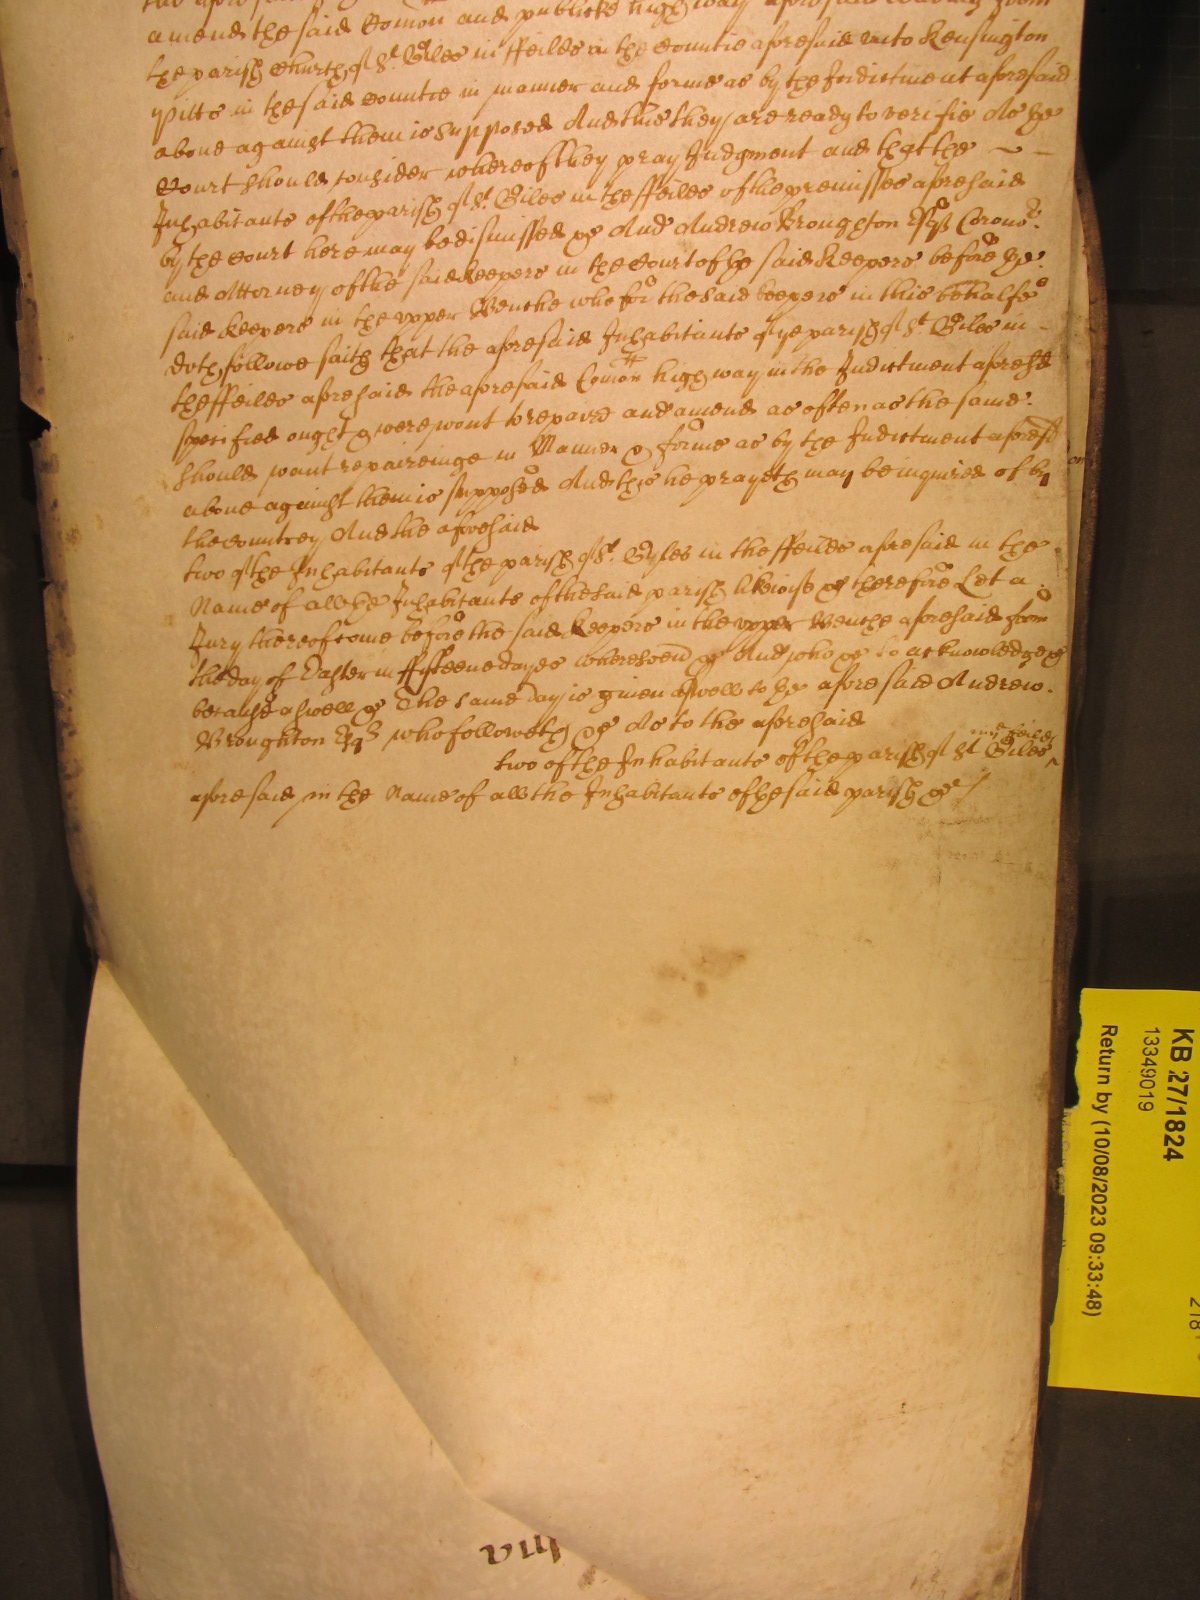 amend the said Comon and publicke high way aforesaid leading from
the parish Church of St. Giles in ffeildes in the Countie aforesaid unto Kensington
Pitts in the said Countie in manner and forme as by the Indictment aforesaid
aboue against them is supposed And this they are ready to verifie As ye
Court should consider whereof they pray Judgment and that the
Inhabitants of the parish of St. Giles in the ffeildes of the premisses aforesaid
by the Court here may be dismissed &c And Andrew Broughton Esqr Corone.
and Attorney of the said Keepers in the Court of ye said Keepers before ye.
said Keepers in the vpper Benche who for the said keepers in this behalfe
doth followe saith that the aforesaid Inhabitants of ye parish of St. Giles in -
the ffeildes aforesaid the aforesaid Comon high way in the Indictment aforesd
specified ought & were wont to repaire and amend as often as the same.
should want repaireinge in Manner & forme as by the Indictment aforesd
aboue against them is supposed And this he prayeth may be inquired of by
the Countrey And the aforesaid
two of the Inhabitants of the parish of St. Gyles in the ffeildes aforesaid in the
Name of all ye Inhabitants of the said parish likewise &c therefore Let a
Jury thereof come before the said Keepers in the vpper Benche aforesaid from
the day of Easter in ffifteene dayes wheresoeu &c And who &c to acknowledge &c
because aswell &c The same day is giuen aswell to ye aforesaid Andrew.
Broughton Esqr who followeth &c As to the aforesaid
in ye feildes
two of the Inhabitants of the parish of St Giles ^
aforesaid in the Name of all the Inhabitants of ye said parish &c /
KB 27/1824
13349019
Return by (10/08/2023 09:33:48)